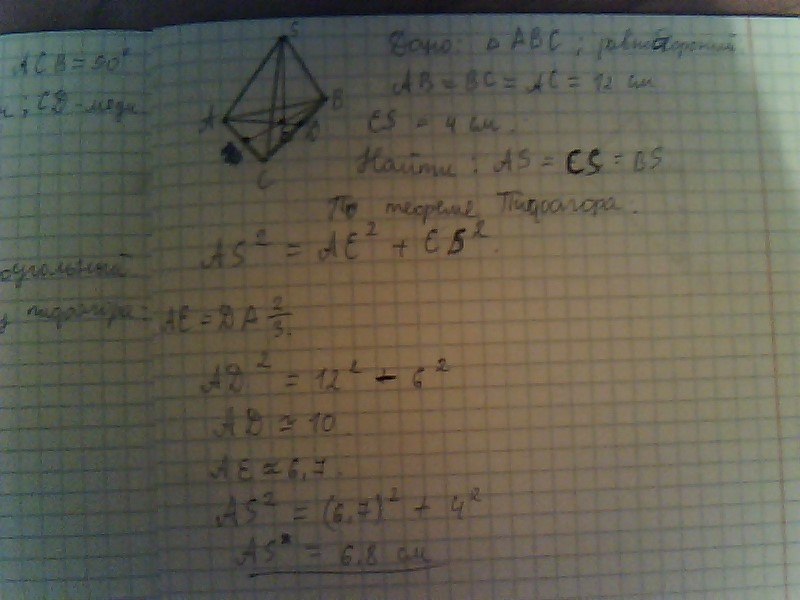 ACB = 90°
; CD - меди
S
A
B
E
D
C
Дано: △ ABC ; равносторонний
AB = BC = AC = 12 см
ES = 4 см.
Найти: AS = CS = BS
По теореме Пифагора.
AS² = AE² + ES².
пифагора:
AE = DA 2/3.
AD² = 12² - 6²
AD ≈ 10
AE ≈ 6,7.
AS² = (6,7)² + 4²
AS = 6,8 см